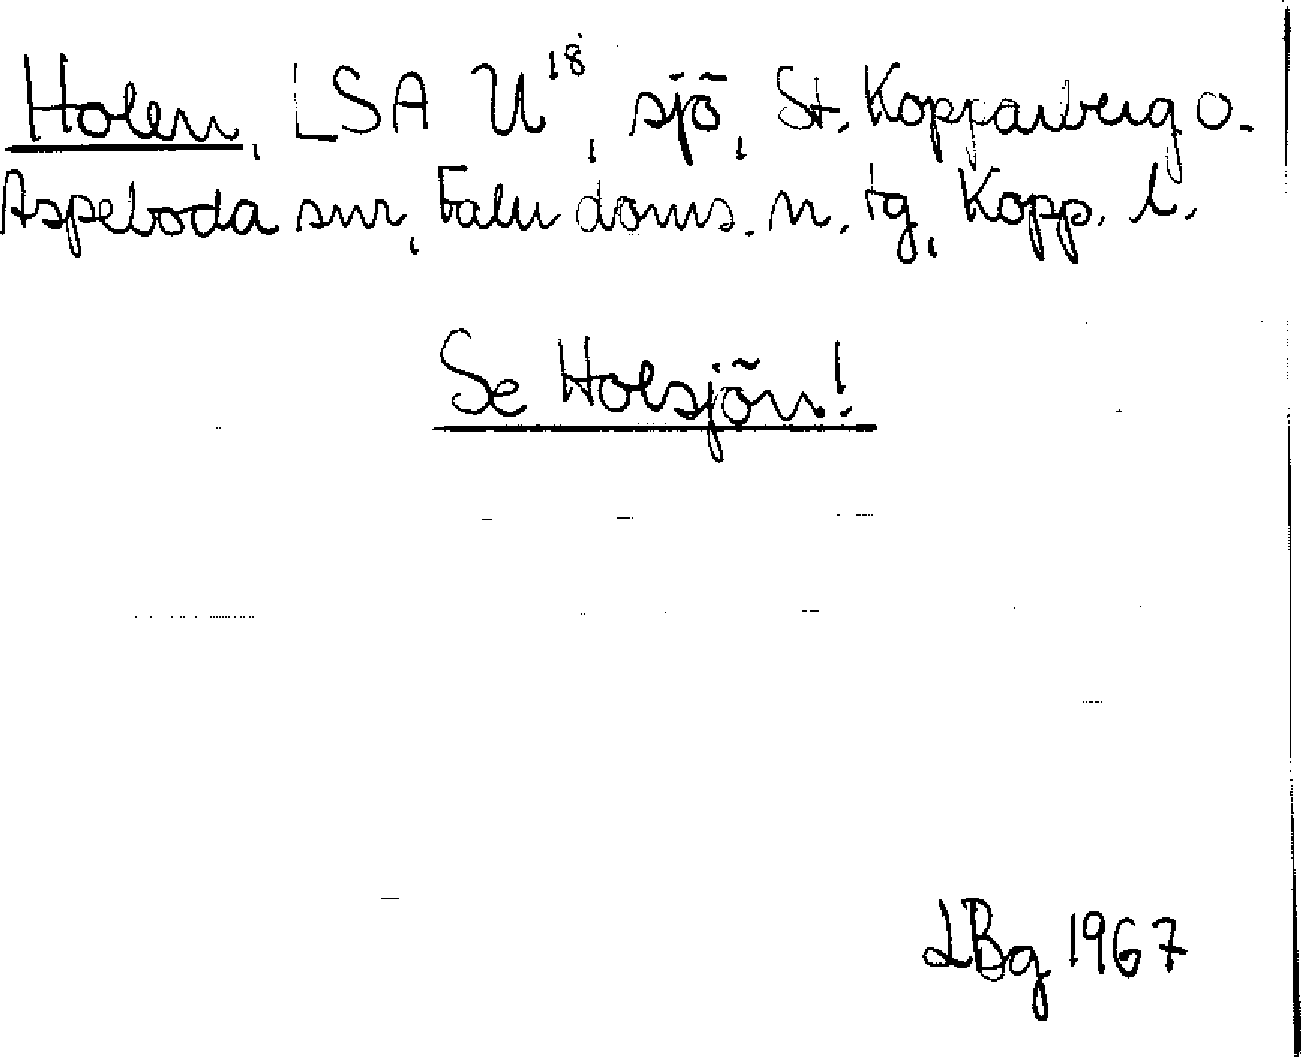 Holen, LSA U18, sjö, St. Kopparberg o.
Aspeboda snr, Falu doms. n. tg, Kopp. l.
Se Holsjön!
LBg 1967